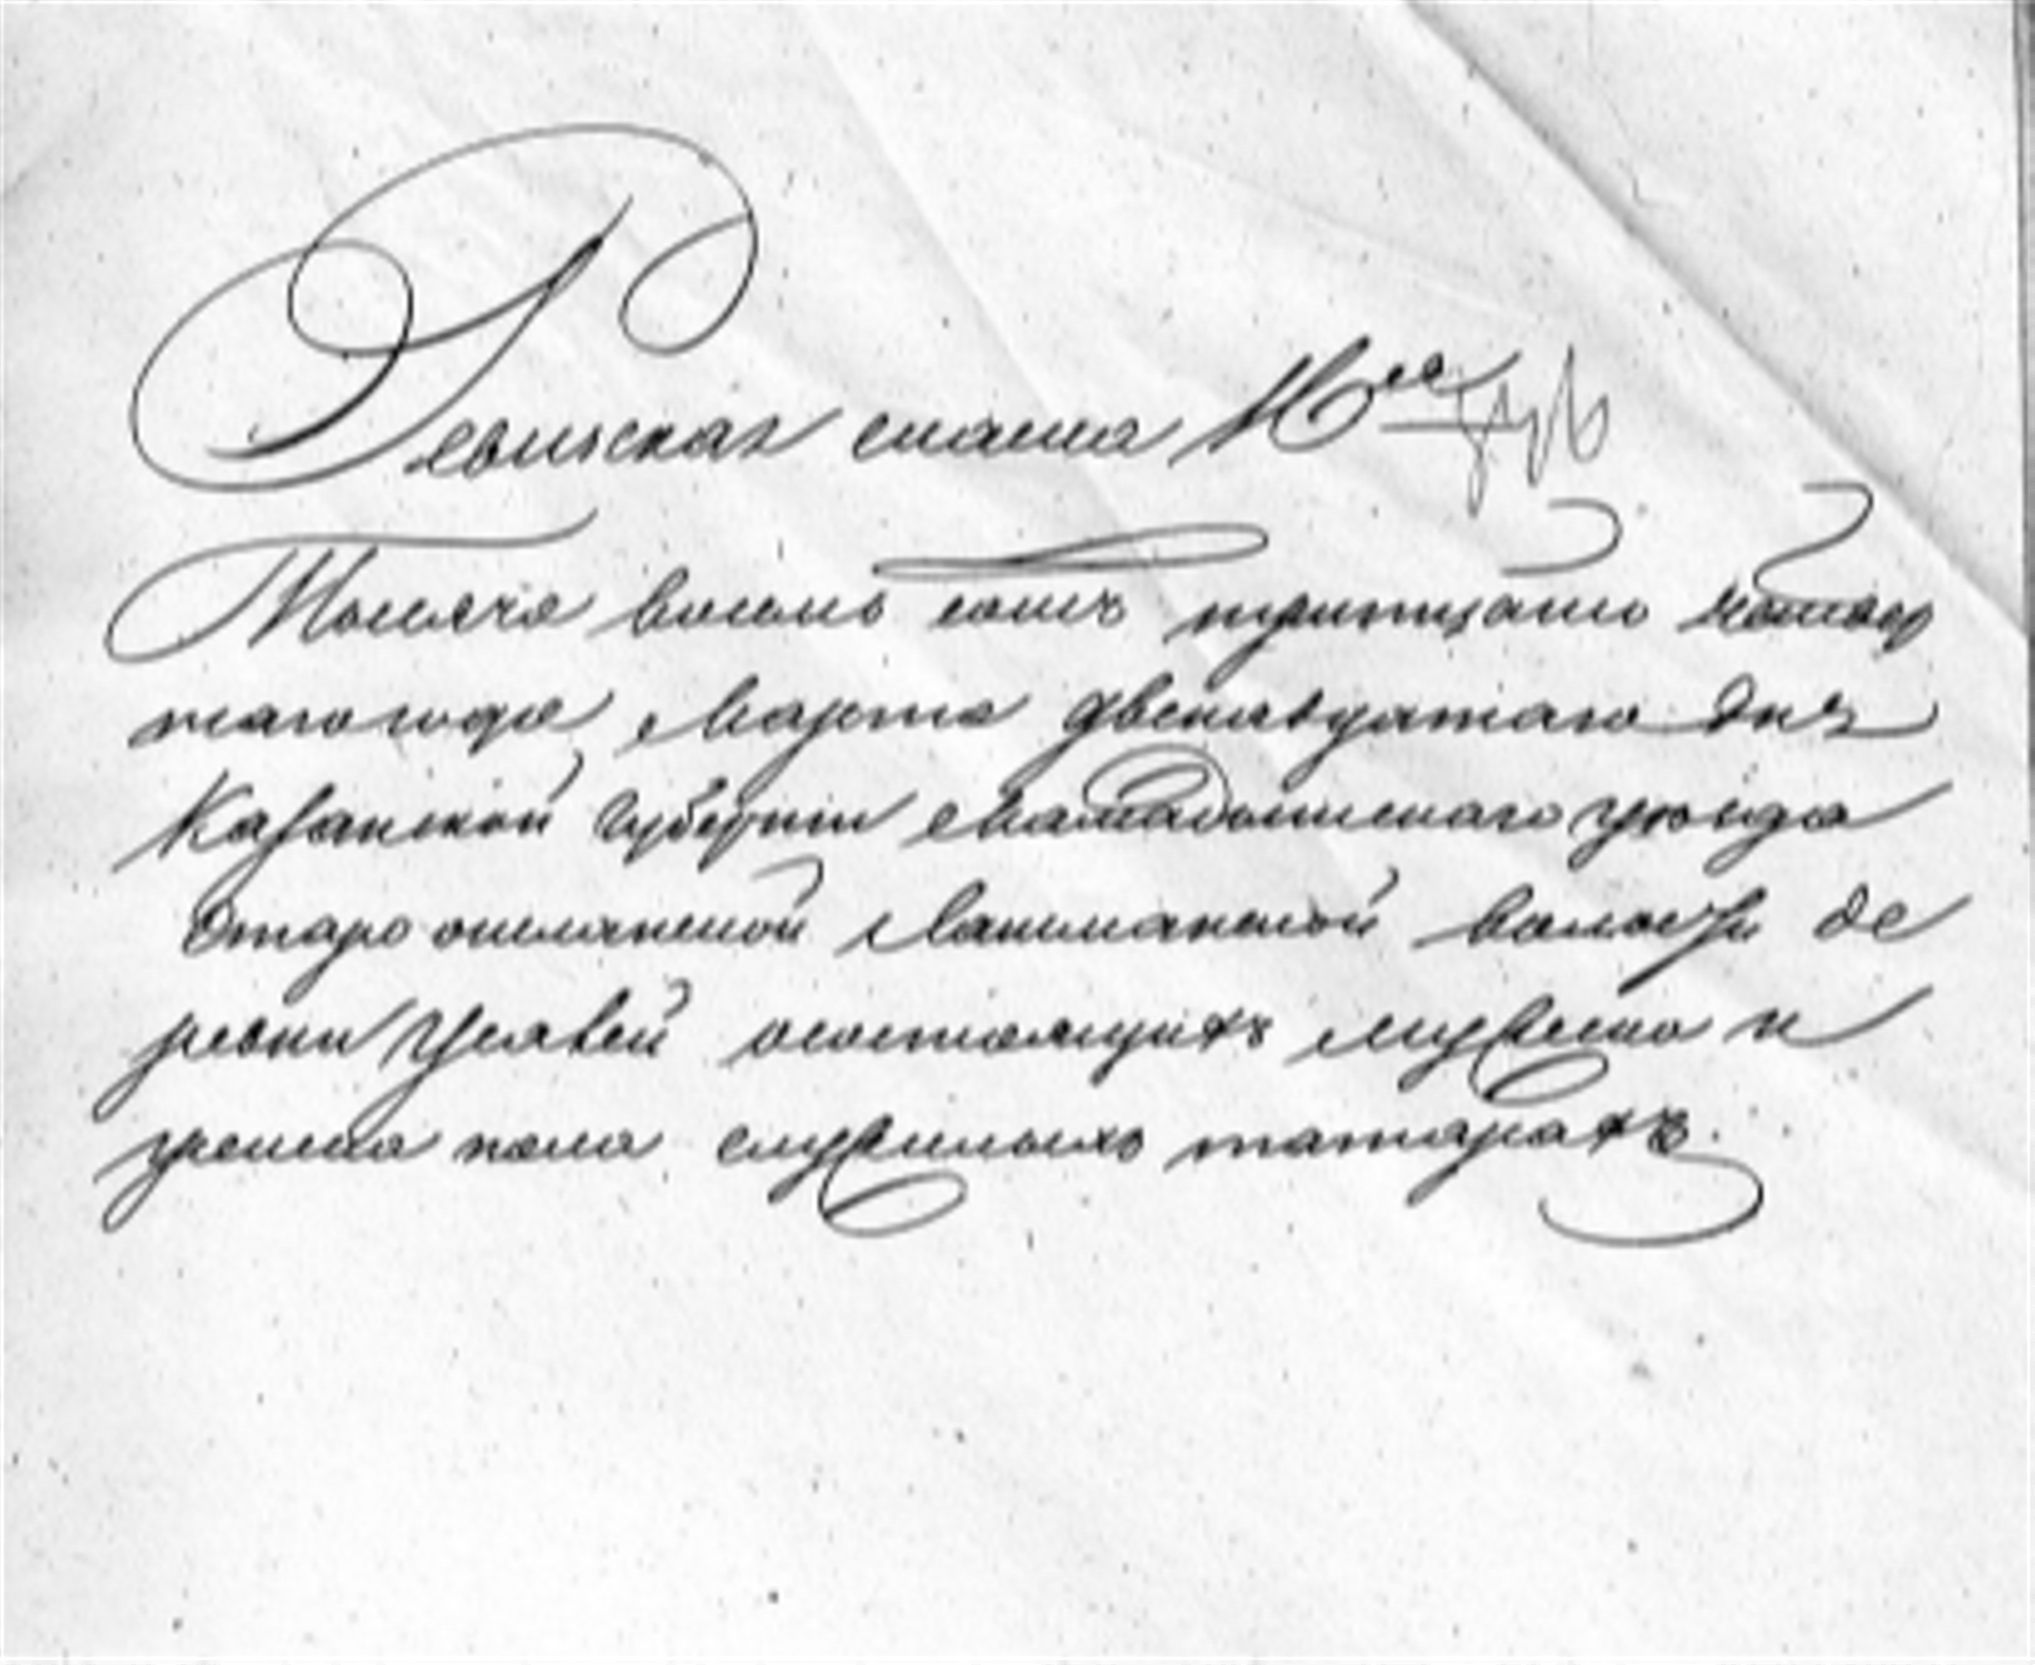 Ревизская скаска №
Тысяча восемь сотъ тритцать четвер
таго года Марта двенатцатаго дня
Казанской губернiи Мамадышскаго уѣзда
Старо Лашманской волости де
ревни о состоящихъ мужеска и
женска пола служилыхъ татарахъ.